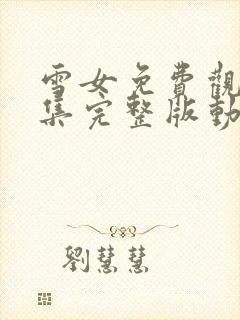 雪女免費觀
集完整版動
劉慧慧